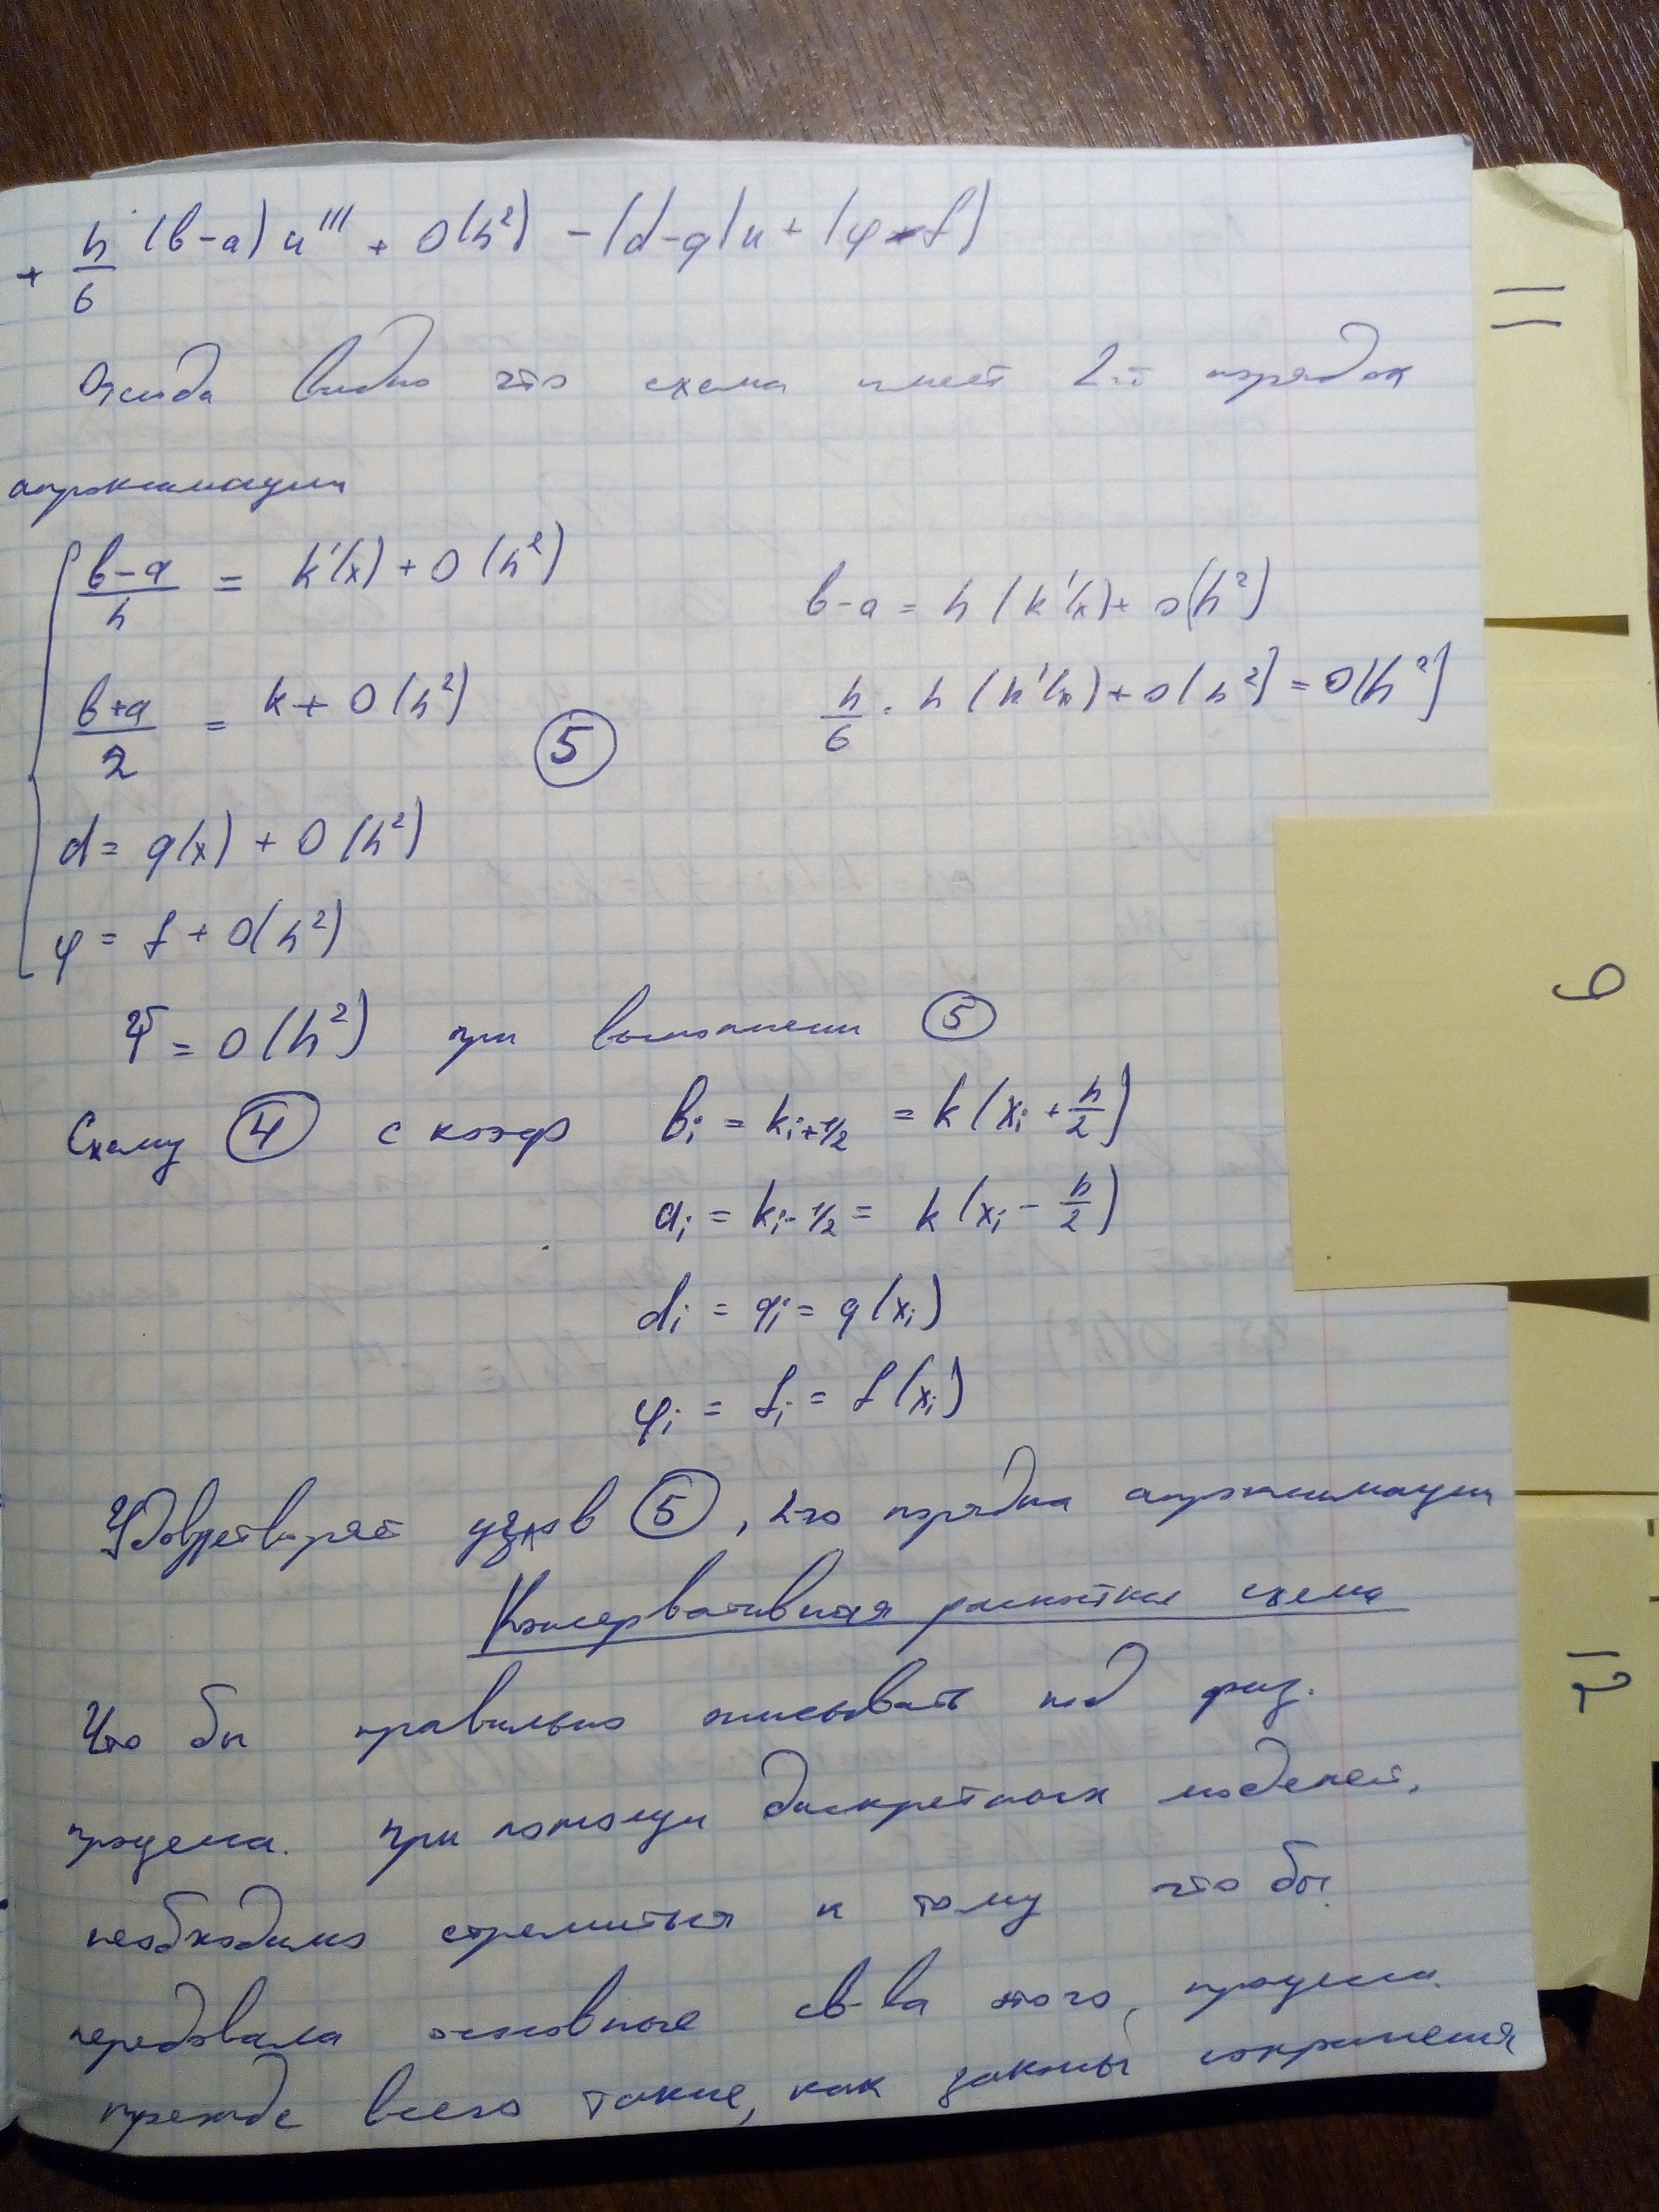 + h/6 (b-a) u''' + O(h²) - (d-q)u + (φ-f)
Отсюда видно что схема имеет 2-й порядок
апроксимации
(b-a)/h = k'(x) + O(h²)
b-a = h(k'(x) + O(h²)
(b+a)/2 = k + O(h²)
⑤
h/6 · h(k'(x) + O(h²) = O(h²)
d = q(x) + O(h²)
φ = f + O(h²)
Ψ = O(h²) при выполнении ⑤
Схему ④ с коэф bᵢ = kᵢ₊₁/₂ = k(xᵢ + h/2)
aᵢ = kᵢ₋₁/₂ = k(xᵢ - h/2)
dᵢ = qᵢ = q(xᵢ)
φᵢ = fᵢ = f(xᵢ)
Удовлетворяет ⑤, 2-го порядка апроксимации
Консервативная разностная схема
Что бы правильно описывать под физ.
процесса. при помощи дискретных моделей,
необходимо стремиться к тому что бы
передовала основные св-ва этого, процесса.
прежде всего такие, как законы сохранения
=
6
12